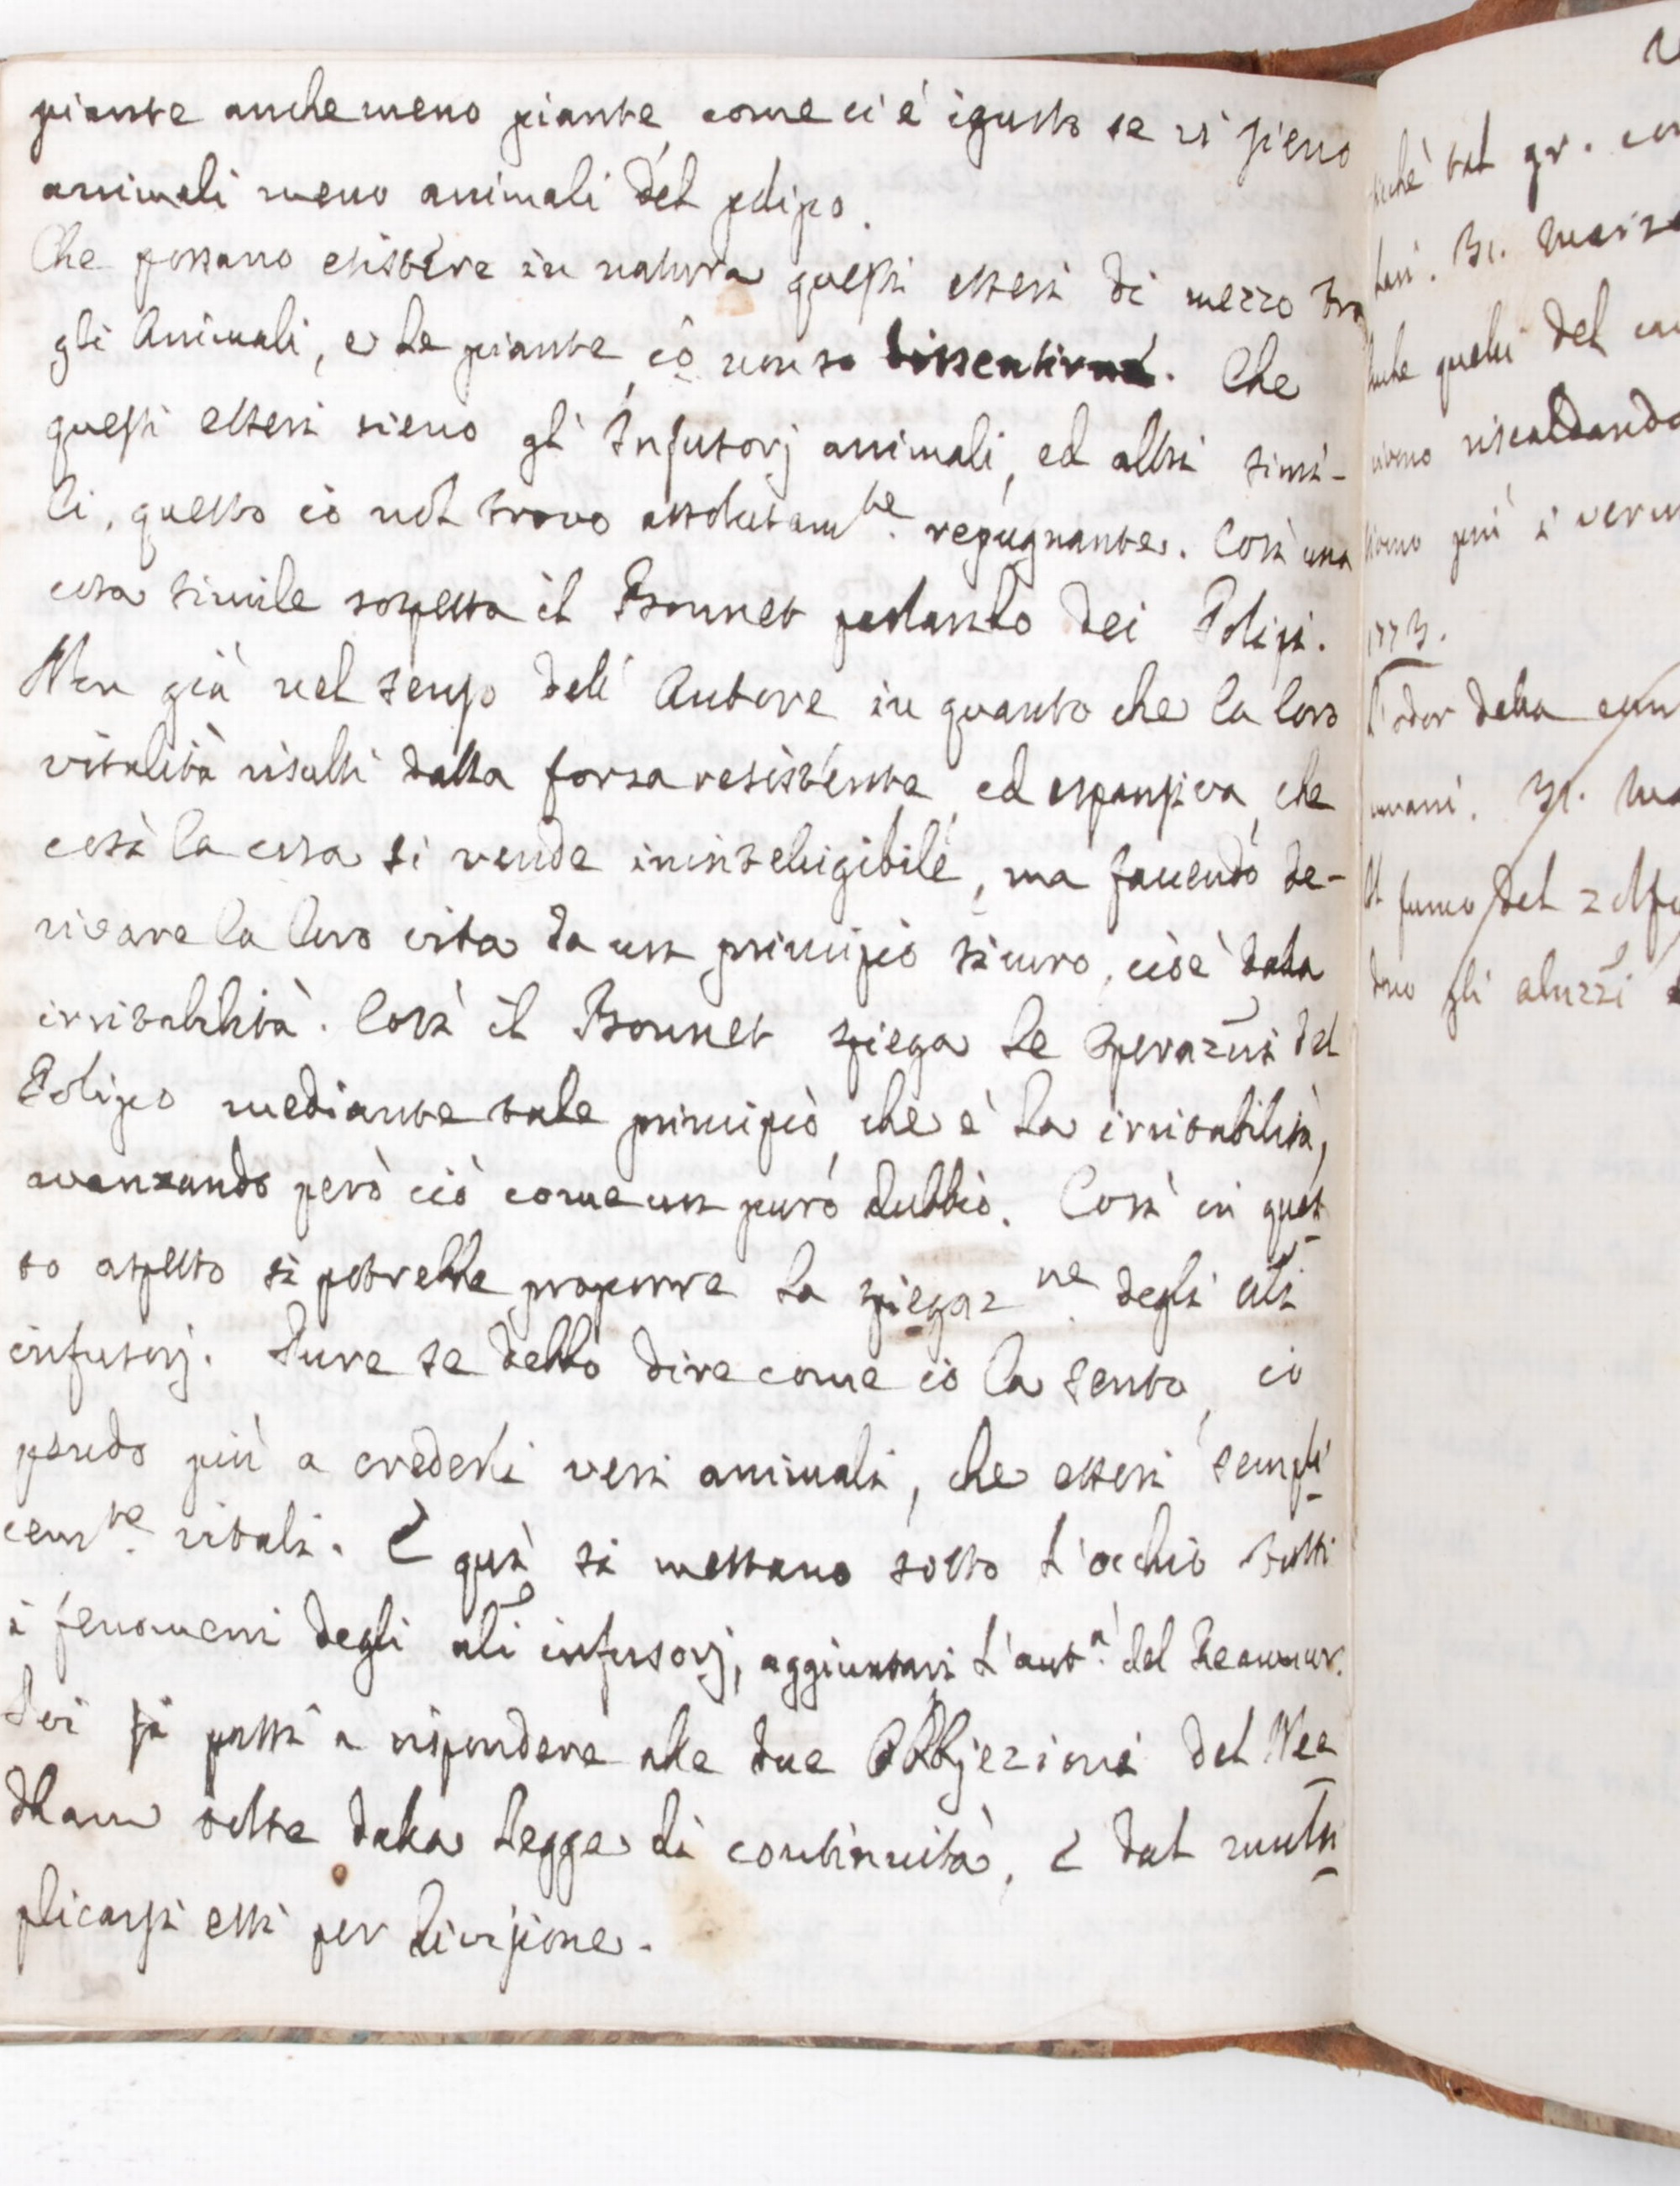 piante anche meno piante, come ci è ignoto se vi sieno
animali meno animali del polipo.
Che possano esistere in natura questi esseri di mezzo tra
gli Animali, e le piante, io non so dissentirne. Che
questi esseri sieno gli Infusorj animali, ed altri simi-
li, questo io nol trovo assolutam.te repugnante. Così una
cosa simile sospetta il Bonnet parlando dei Polipi.
Non già nel senso dell'Autore in quanto che la loro
vitalità risulti dalla forza resistente, ed espansiva, che
così la cosa si rende inintelligibile, ma facendo de-
rivare la loro vita da un principio sicuro, cioè dalla
irritabilità. Così il Bonnet spiega le operazni del
Polipo mediante tale principio, che è la irritabilità,
avanzando però ciò come un puro dubbio. Così in ques-
to aspetto si potrebbe proporre la spiegaz.ne degli ali
infusorj. Pure se debbo dire come io la sento, io
pendo più a crederli veri animali, che esseri sempli-
cem.te vitali. E quì si mettano sotto l'occhio tutti
i fenomeni degli ali infusorj, aggiuntavi l'aut.à del Reaumur.
Poi si passi a rispondere alle due Obbjezioni del Nee-
dham tolte dalla legge di continuità, e dal multi-
plicarsi essi per divisione.
tal gr.
31. Marzo
quelli del
riscaldando
più i verm
1773.
L'odor della
31. Ma
Il fumo del zolfo
gli aluzzi